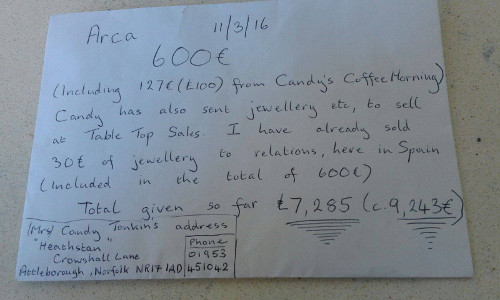 Arca 11/3/16
600€
(Including 127€ (£100) from Candy's Coffee Morning)
Candy has also sent jewellery etc, to sell
at Table Top Sales. I have already sold
30€ of jewellery to relations, here in Spain
(Included in the total of 600€)
Total given so far £7,285 (c. 9,243€)
(Mrs) Candy Tonkins address
"Heathstan"
Crowshall Lane
Attleborough, Norfolk NR17 1AD
Phone
01953
451042